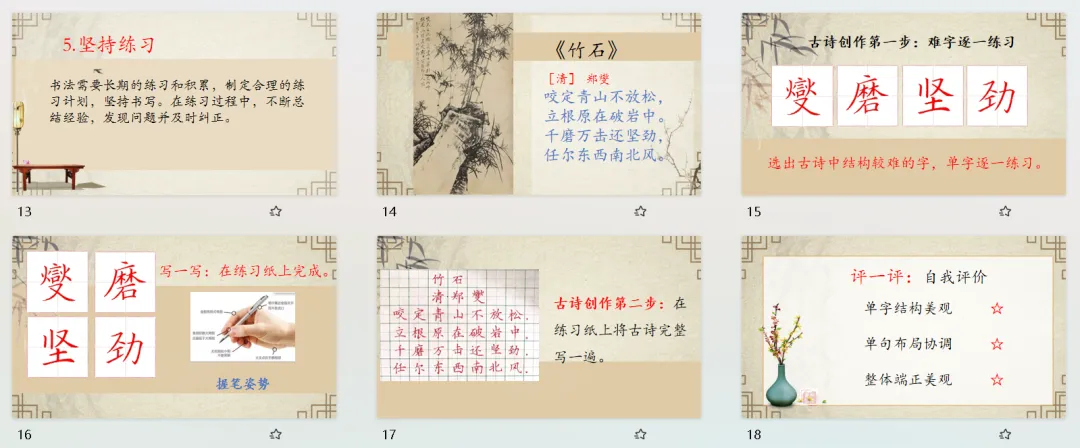 5.坚持练习
书法需要长期的练习和积累，制定合理的练
习计划，坚持书写。在练习过程中，不断总
结经验，发现问题并及时纠正。
13
《竹石》
［清］ 郑燮
咬定青山不放松，
立根原在破岩中。
千磨万击还坚劲，
任尔东西南北风。
14
古诗创作第一步：难字逐一练习
燮 磨 坚 劲
选出古诗中结构较难的字，单字逐一练习。
15
燮 磨
坚 劲
写一写：在练习纸上完成。
握笔姿势
16
竹石
清 郑燮
咬定青山不放松，
立根原在破岩中。
千磨万击还坚劲，
任尔东西南北风。
古诗创作第二步：在
练习纸上将古诗完整
写一遍。
17
评一评：自我评价
单字结构美观
单句布局协调
整体端正美观
18